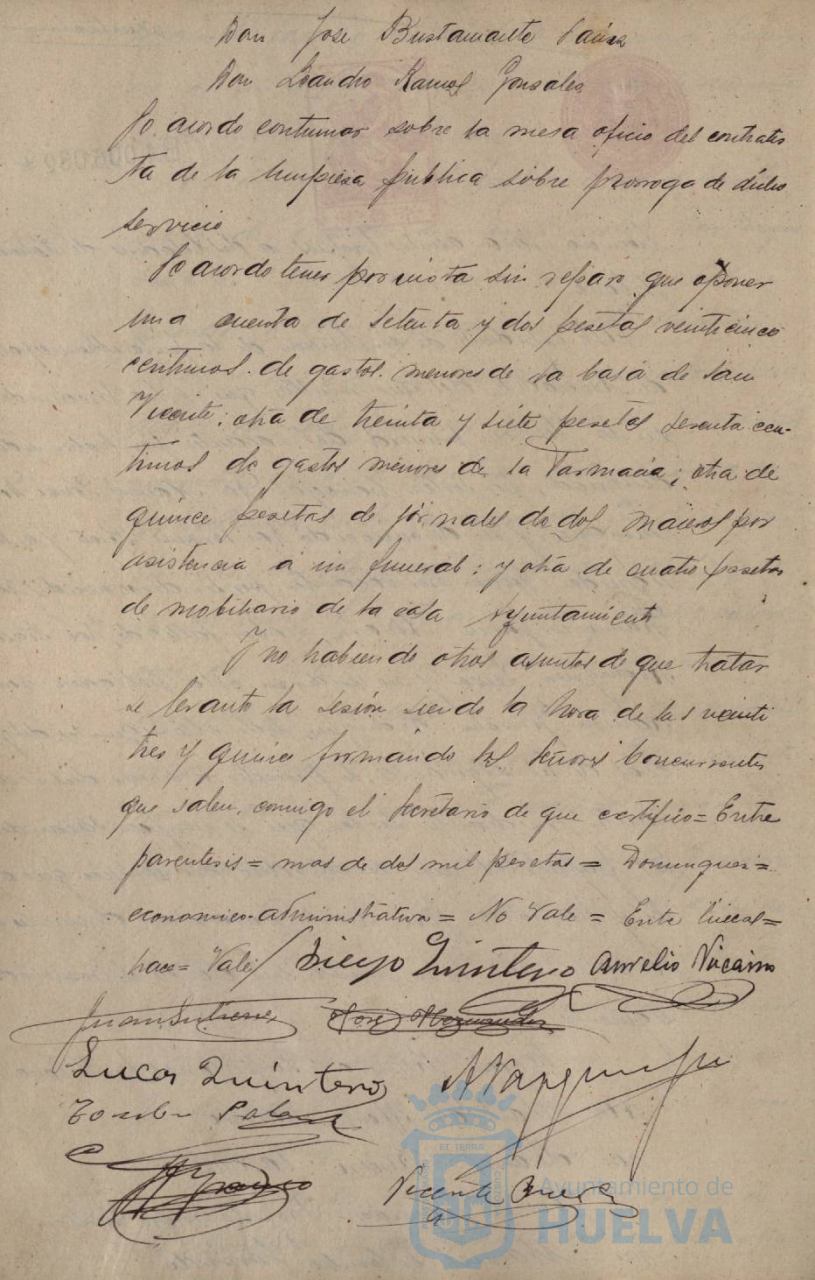 Don Jose Bustamante
Don Leandro Ramos Gonzalez
Se acordo continuar sobre la mesa oficio del contratis
ta de la limpieza publica sobre prorroga de dicho
servicio
Se acordo tener por vista sin reparo que oponer
una cuenta de setenta y dos pesetas veinticinco
centimos de gastos menores de la casa de San
Vicente; otra de treinta y siete pesetas sesenta cen-
timos de gastos menores de la Farmacia; otra de
quince pesetas de jornales de dos maceros por
asistencia a un funeral; y otra de cuatro pesetas
de mobiliario de la casa Ayuntamiento
Y no habiendo otros asuntos de que tratar
se levanto la sesión siendo la hora de las veinti
tres y quince firmando los Señores Concurrentes
que saben, conmigo el Secretario de que certifico= Entre
parentesis= mas de dos mil pesetas = Dominguez=
economico-administrativa= No Vale = Entre lineas=
Vale/ Diego Quintero Aurelio Vizcaino
Juan Gutierrez Jose Hernandez
Lucas Quintero A Vazquez
Vicente
Ayuntamiento de
HUELVA